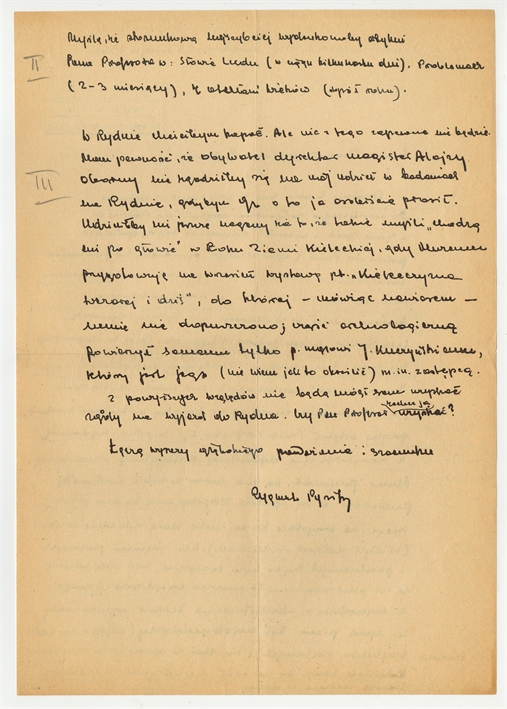 Myślę, że stosunkowo najszybciej wydrukowałby artykuł
Pana Profesora w: Słowie Ludu (w ciągu kilkunastu dni). Problemach
II
(2-3 miesięcy), Z otchłani wieków (wpół roku).
W Rydnie chciałbym kopać. Ale nic z tego zapewne nie będzie.
Mam pewność, że obywatel dyrektor magister Alojzy
III
Oborny nie zgodziłby się na mój udział w badaniach
na Rydnie, gdybym Go o to ja osobiście prosił.
Udzieliłby mi jeszcze nagany za to, że takie myśli "chodzą
mi po głowie" w Roku Ziemi Kieleckiej, gdy Muzeum
przygotowuje na wrzesień wystawę pt. "Kielecczyzna
wczoraj i dziś", do której - mówiąc nawiasem -
mnie nie dopuszczono; część archeologiczną
powierzył samemu tylko p. mgrowi J. Kuczyńskiemu,
który jest jego (nie wiem jak to określić) m.in. zastępcą.
Z powyższych względów nie będę mógł sam uzyskać
zgody na wyjazd do Rydna. Czy Pan Profesor uzyskać?
Łączę wyrazy głębokiego poważania i szacunku
Zygmunt Pyzik